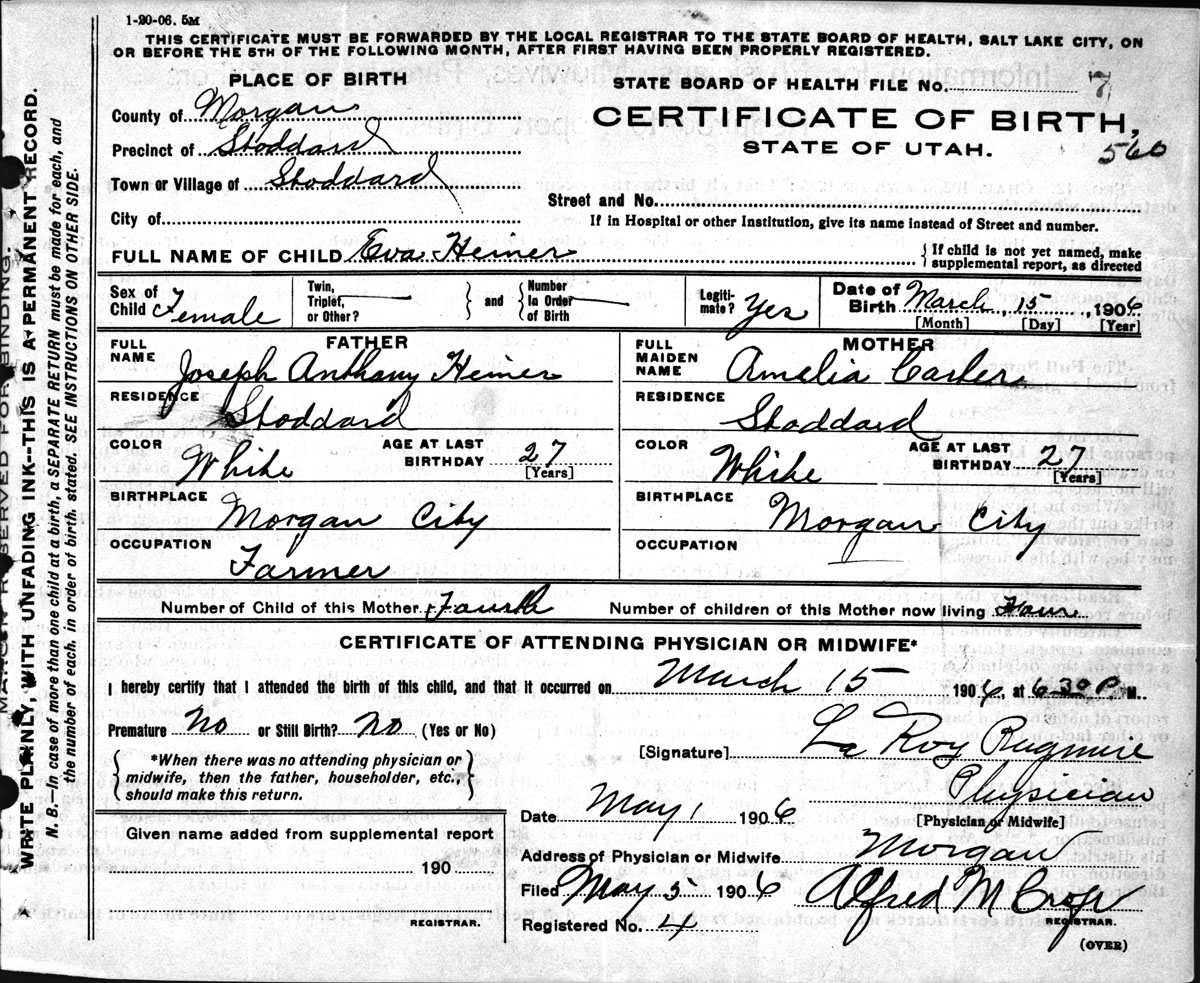 1-20-06. 5M
THIS CERTIFICATE MUST BE FORWARDED BY THE LOCAL REGISTRAR TO THE STATE BOARD OF HEALTH, SALT LAKE CITY, ON
OR BEFORE THE 5TH OF THE FOLLOWING MONTH, AFTER FIRST HAVING BEEN PROPERLY REGISTERED.
PLACE OF BIRTH
County of Morgan
Precinct of Stoddard
Town or Village of Stoddard
City of
STATE BOARD OF HEALTH FILE No. 7
CERTIFICATE OF BIRTH,
STATE OF UTAH. 560
Street and No.
If in Hospital or other Institution, give its name instead of Street and number.
FULL NAME OF CHILD Eva Heiner { If child is not yet named, make
supplemental report, as directed
Sex of Child Female
Twin, Triplet, or Other? — } and { Number In Order of Birth —
Legitimate? Yes
Date of Birth March 15, 1906
[Month] [Day] [Year]
FATHER
FULL NAME Joseph Anthany Heiner
RESIDENCE Stoddard
COLOR White AGE AT LAST BIRTHDAY 27 [Years]
BIRTHPLACE Morgan City
OCCUPATION Farmer
MOTHER
FULL MAIDEN NAME Amelia Carter
RESIDENCE Stoddard
COLOR White AGE AT LAST BIRTHDAY 27 [Years]
BIRTHPLACE Morgan City
OCCUPATION —
Number of Child of this Mother Fourth Number of children of this Mother now living Four
CERTIFICATE OF ATTENDING PHYSICIAN OR MIDWIFE*
I hereby certify that I attended the birth of this child, and that it occurred on March 15 1906, at 6-30 P. M.
Premature No or Still Birth? No (Yes or No)
{ *When there was no attending physician or
midwife, then the father, householder, etc.,
should make this return. }
Given name added from supplemental report
190
REGISTRAR.
[Signature] La Roy
Physician
[Physician or Midwife]
Date May 1 1906
Address of Physician or Midwife Morgan
Filed May 5 1906 Alfred M
REGISTRAR.
Registered No. 4
(OVER)
MARGIN RESERVED FOR BINDING.
WRITE PLAINLY, WITH UNFADING INK--THIS IS A PERMANENT RECORD.
N. B.—In case of more than one child at a birth, a SEPARATE RETURN must be made for each, and
the number of each, in order of birth, stated. SEE INSTRUCTIONS ON OTHER SIDE.